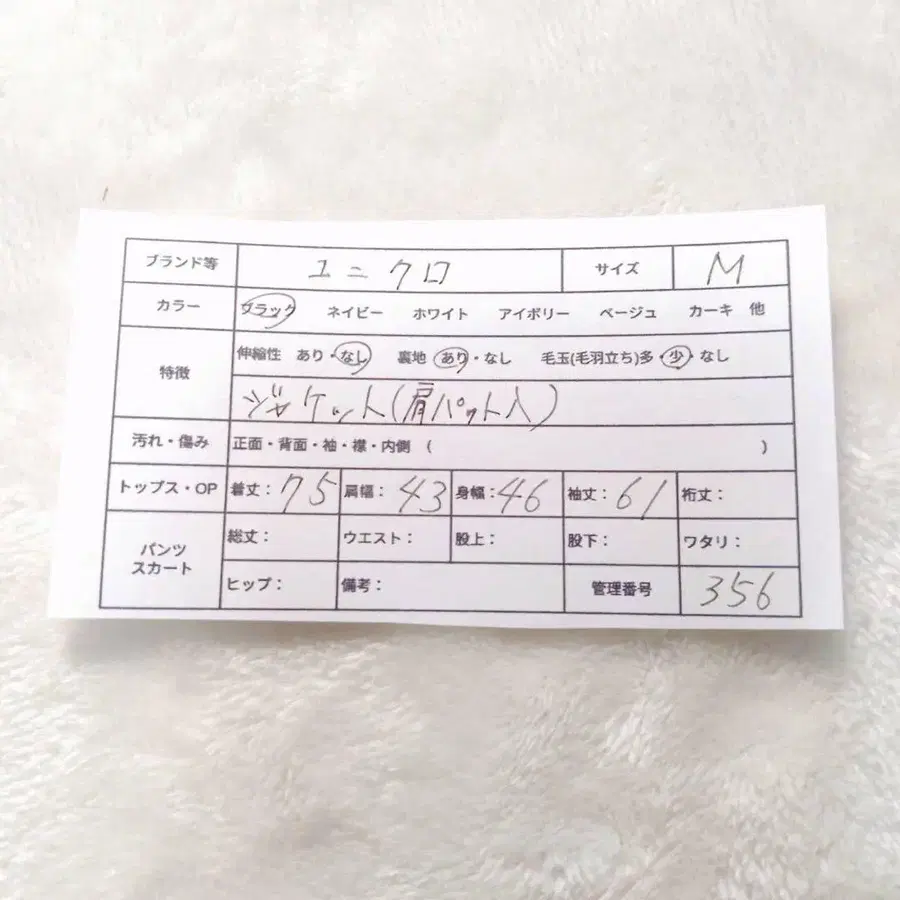 ブランド等 ユニクロ サイズ M
カラー ブラック ネイビー ホワイト アイボリー ベージュ カーキ 他
特徴 伸縮性 あり・なし 裏地 あり・なし 毛玉(毛羽立ち)多・少・なし
ジャケット(肩パット入)
汚れ・傷み 正面・背面・袖・襟・内側 ( )
トップス・OP 着丈:75 肩幅:43 身幅:46 袖丈:61 裄丈:
パンツ スカート 総丈: ウエスト: 股上: 股下: ワタリ:
ヒップ: 備考: 管理番号 356